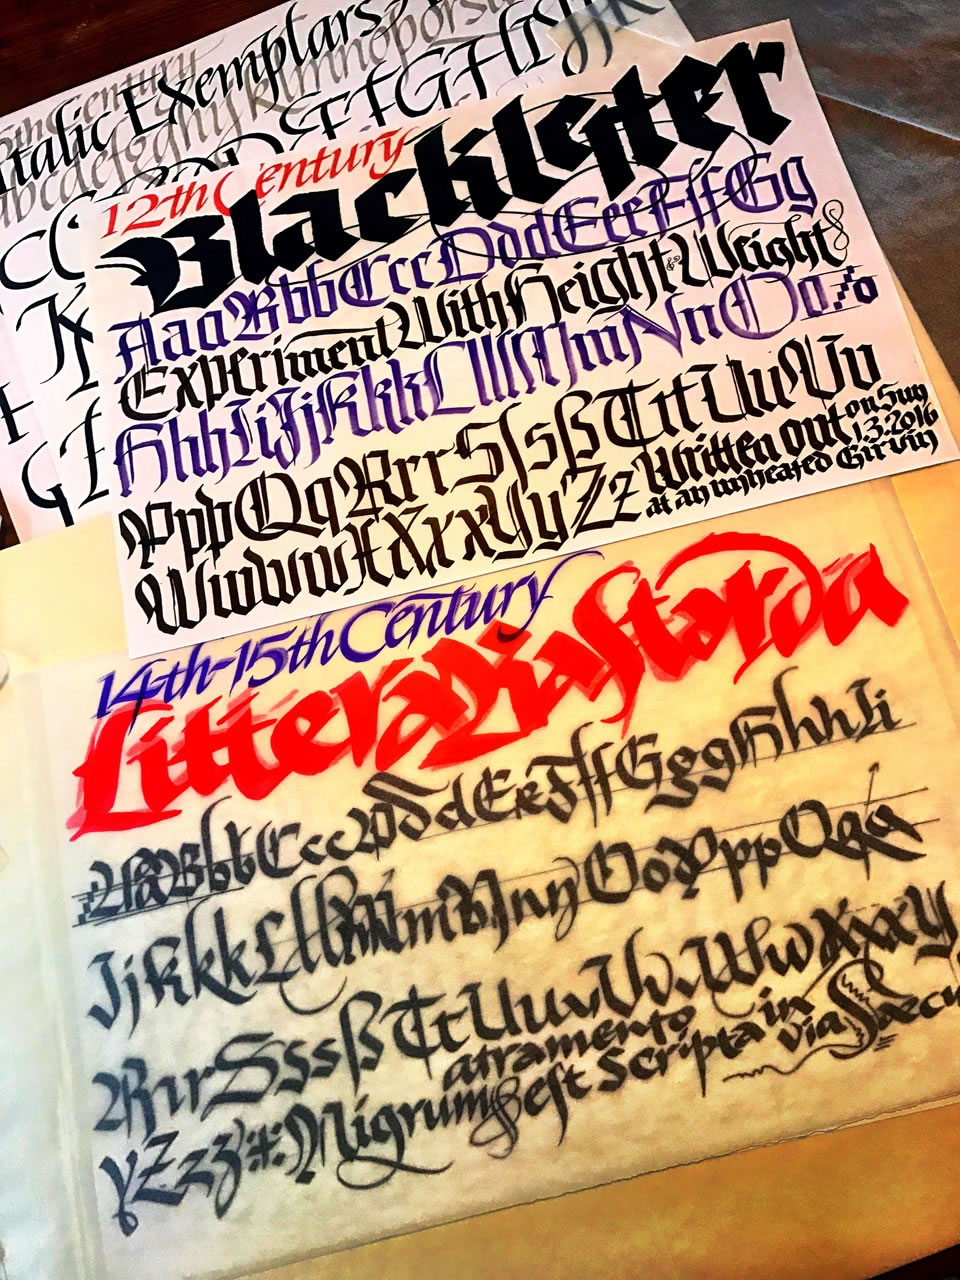 15th Century
Italic Exemplars
abcdefghijklmnopqrs
12th Century
Blackletter
AaaBbbCccDddEeeFffGg
Experiment With Height & Weight &
HhhIiJjKkkLlllMmNnOo
PppQqRrrSſsßTttUuVv
WwwwXxxxYyZz Written out on Sun
1.3.2016
at an unheated Girvin
14th-15th Century
Littera Bastarda
AaBbbCccDddEeFffGggHhhIi
JjKkkLlllMmNnnOoPppQqq
RrrSssßTtUuuVvvWwwXxxYy
yZzz Nigrum atramento
est scripta in
via